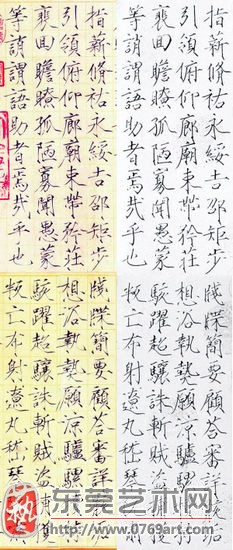 指薪脩祜永綏吉邵矩步
引領俯仰廊廟束帶矜莊
裵回瞻眺孤陋寡聞愚蒙
等誚謂語助者焉哉乎也
指薪脩祜永綏吉邵矩步
引領俯仰廊廟束帶矜莊
裵回瞻眺孤陋寡聞愚蒙
等誚謂語助者焉哉乎也
牋牒簡要顧答審詳骸垢
想浴執熱願涼驢騾犢特
駭躍超驤誅斬賊盜捕獲
叛亡布射遼丸嵇琴
牋牒簡要顧答審詳
想浴執熱願涼驢騾
駭躍超驤誅斬賊盜捕
叛亡布射遼丸嵇琴
藝
东莞艺术网
http://www.0769art.com